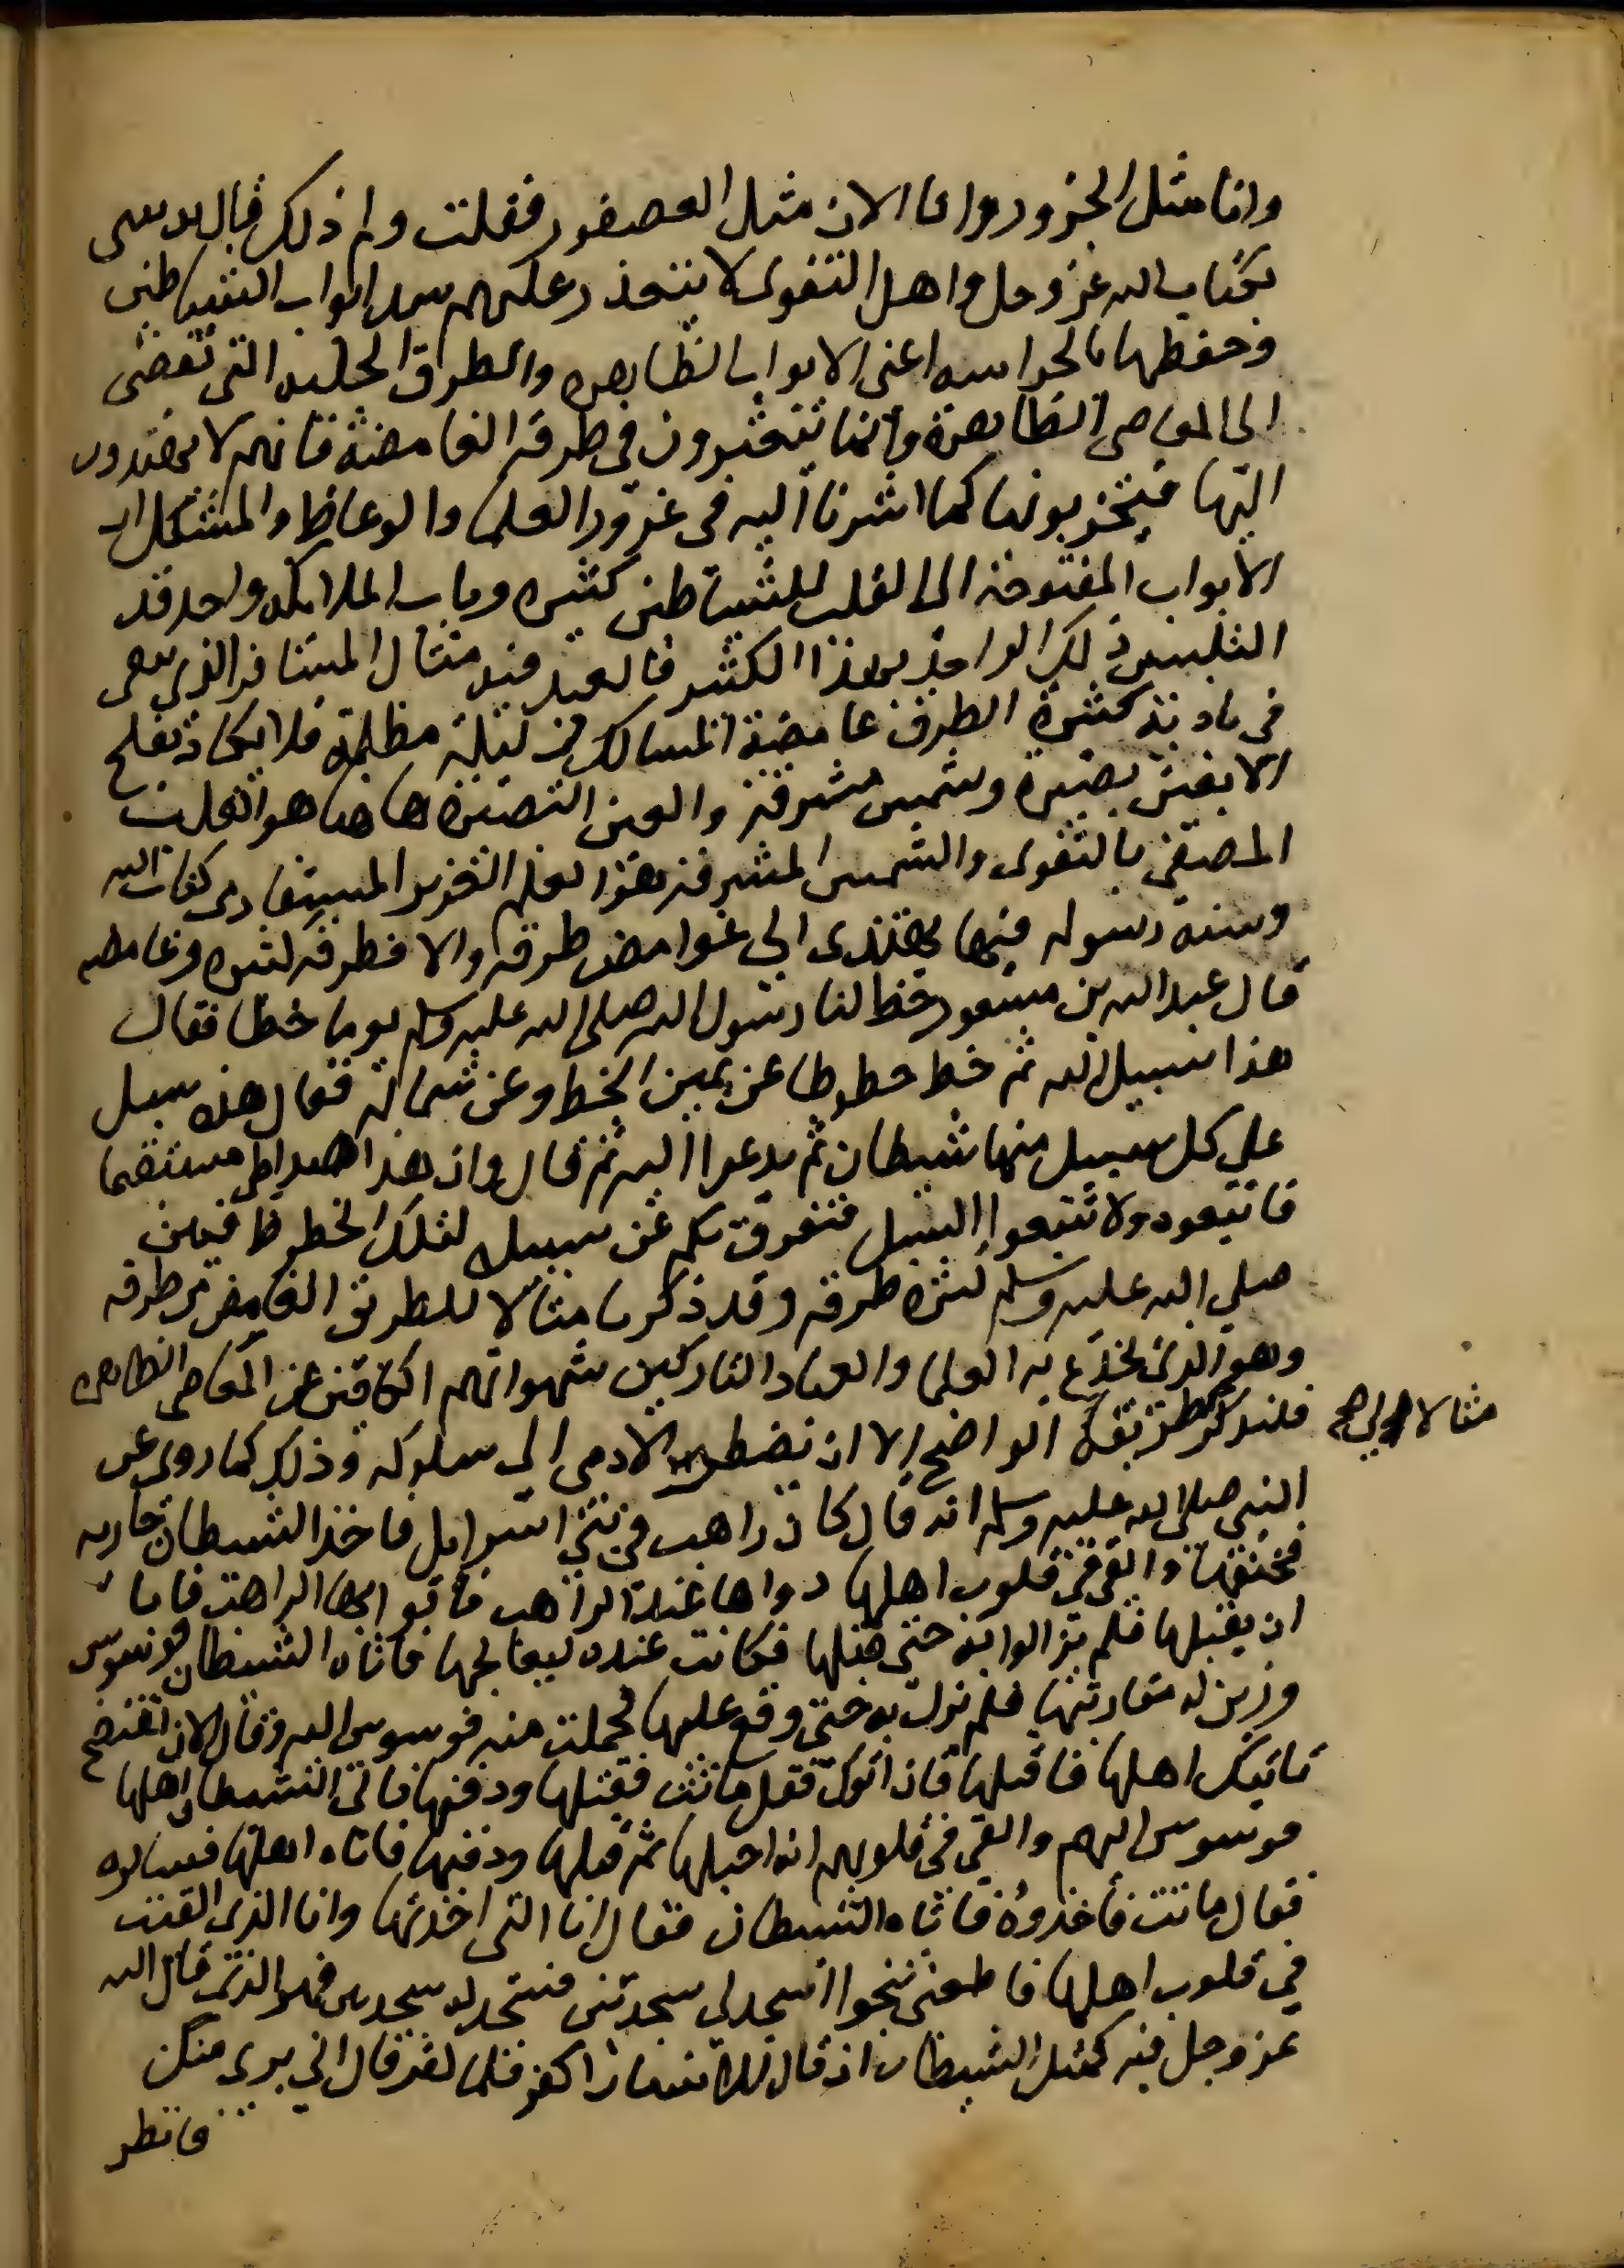 وانا مثل الجزور وانا الان مثل العصفور فقلت ولم ذلك قال تذيبني
بكتاب الله عز وجل واهل التقوى لا يتعذر عليهم سد ابواب الشياطين
وحفظها بالحراسه اعني الابواب الظاهره والطرق الجليه التي تفضي
الى المعاصي الظاهرة وانما يتعثرون في طرقه الغامضة فانهم لا يهتدون
اليها فيحرسونها كما اشرنا اليه في غرور العلما والوعاظ والمشكل ان
الابواب المفتوحة الى القلب للشياطين كثيره وباب الملايكه واحد قد
التبس ذلك الواحد بهذا الكثير فالعبد فيه مثال المسافر الذي يبقى
في باديه كثيرة الطرق غامضة المسالك في ليلة مظلمة فلا يكاد يفلح
الا بعين بصيرة وشمس مشرقة والعين البصيره هاهنا هو القلب
المصفى بالتقوى والشمس المشرقة هو العلم الغزير المستفاد من كتاب الله
وسنة رسوله فبهما يهتدى الى غوامض طرقه والا فطرقه كثيره وغامضه
قال عبد الله بن مسعود خط لنا رسول الله صلى الله عليه وسلم يوما خطا فقال
هذا سبيل الله ثم خط خطوطا عن يمين الخط وعن شماله فقال هذه سبل
على كل سبيل منها شيطان ثم يدعوا اليه ثم قال وان هذا صراطي مستقيما
فاتبعوه ولا تتبعوا السبل فتفرق بكم عن سبيله لتلك الخطوط فبين
صلى الله عليه وسلم كثره طرقه وقد ذكرنا مثالا للطريق الغامض من طرقه
وهو الذي يخدع به العلما والعباد التاركين شهواتهم الكافين عن المعاصي الظاهره
فلنذكر مثالا لطريقه الواضح الا ان يضطر الادمي الى سلوكه وذلك كما روي عن
النبي صلى الله عليه وسلم انه قال كان راهب في بني اسرايل فاخذ الشيطان جاريه
فخنقها والقى في قلوب اهلها دواها عند الراهب فاتوا بها الراهب فابا
ان يقبلها فلم يزالوا به حتى قبلها فكانت عنده ليعالجها فاتاه الشيطان فوسوس
وزين له مقاربتها فلم يزل به حتى وقع عليها فحملت منه فوسوس اليه وقال الان تفتضح
ياتيك اهلها فاقتلها فان اتوك فقل ماتت فقتلها ودفنها فاتى الشيطان اهلها
فوسوس اليهم والقى في قلوبهم انه احبلها ثم قتلها ودفنها فاتاه اهلها فسالوه
فقال ماتت فاخذوه فاتاه الشيطان فقال انا الذي اخذتها وانا الذي القيت
في قلوب اهلها فاطعني تنجوا اسجد لي سجدتين فسجد له سجدتين فهو الذي قال الله
عز وجل فيه كمثل الشيطان اذ قال للانسان اكفر فلما كفر قال اني بري منك
فانظر